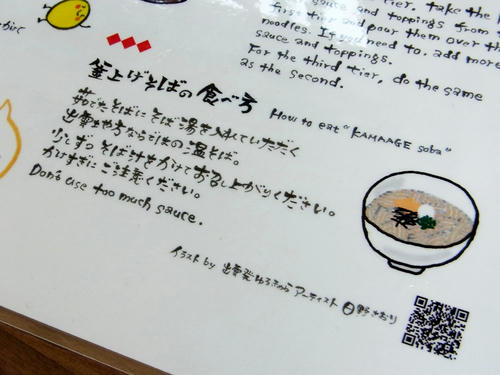 sauce and toppings from t
first tier and pour them over the
noodles. If you need to. add more
sauce and toppings.
For the third tier, do the same
as the second.
釜上げそばの食べ方 How to eat "KAMAAGE soba"
茹でたそばにそば湯を入れていただく
出雲ならではの温そば。
少しずつそば汁をかけてお召し上がりください。
かけすぎにご注意ください。
Don't use too much sauce.
イラスト by 出雲発ゆるきゃらアーティスト 野さおり